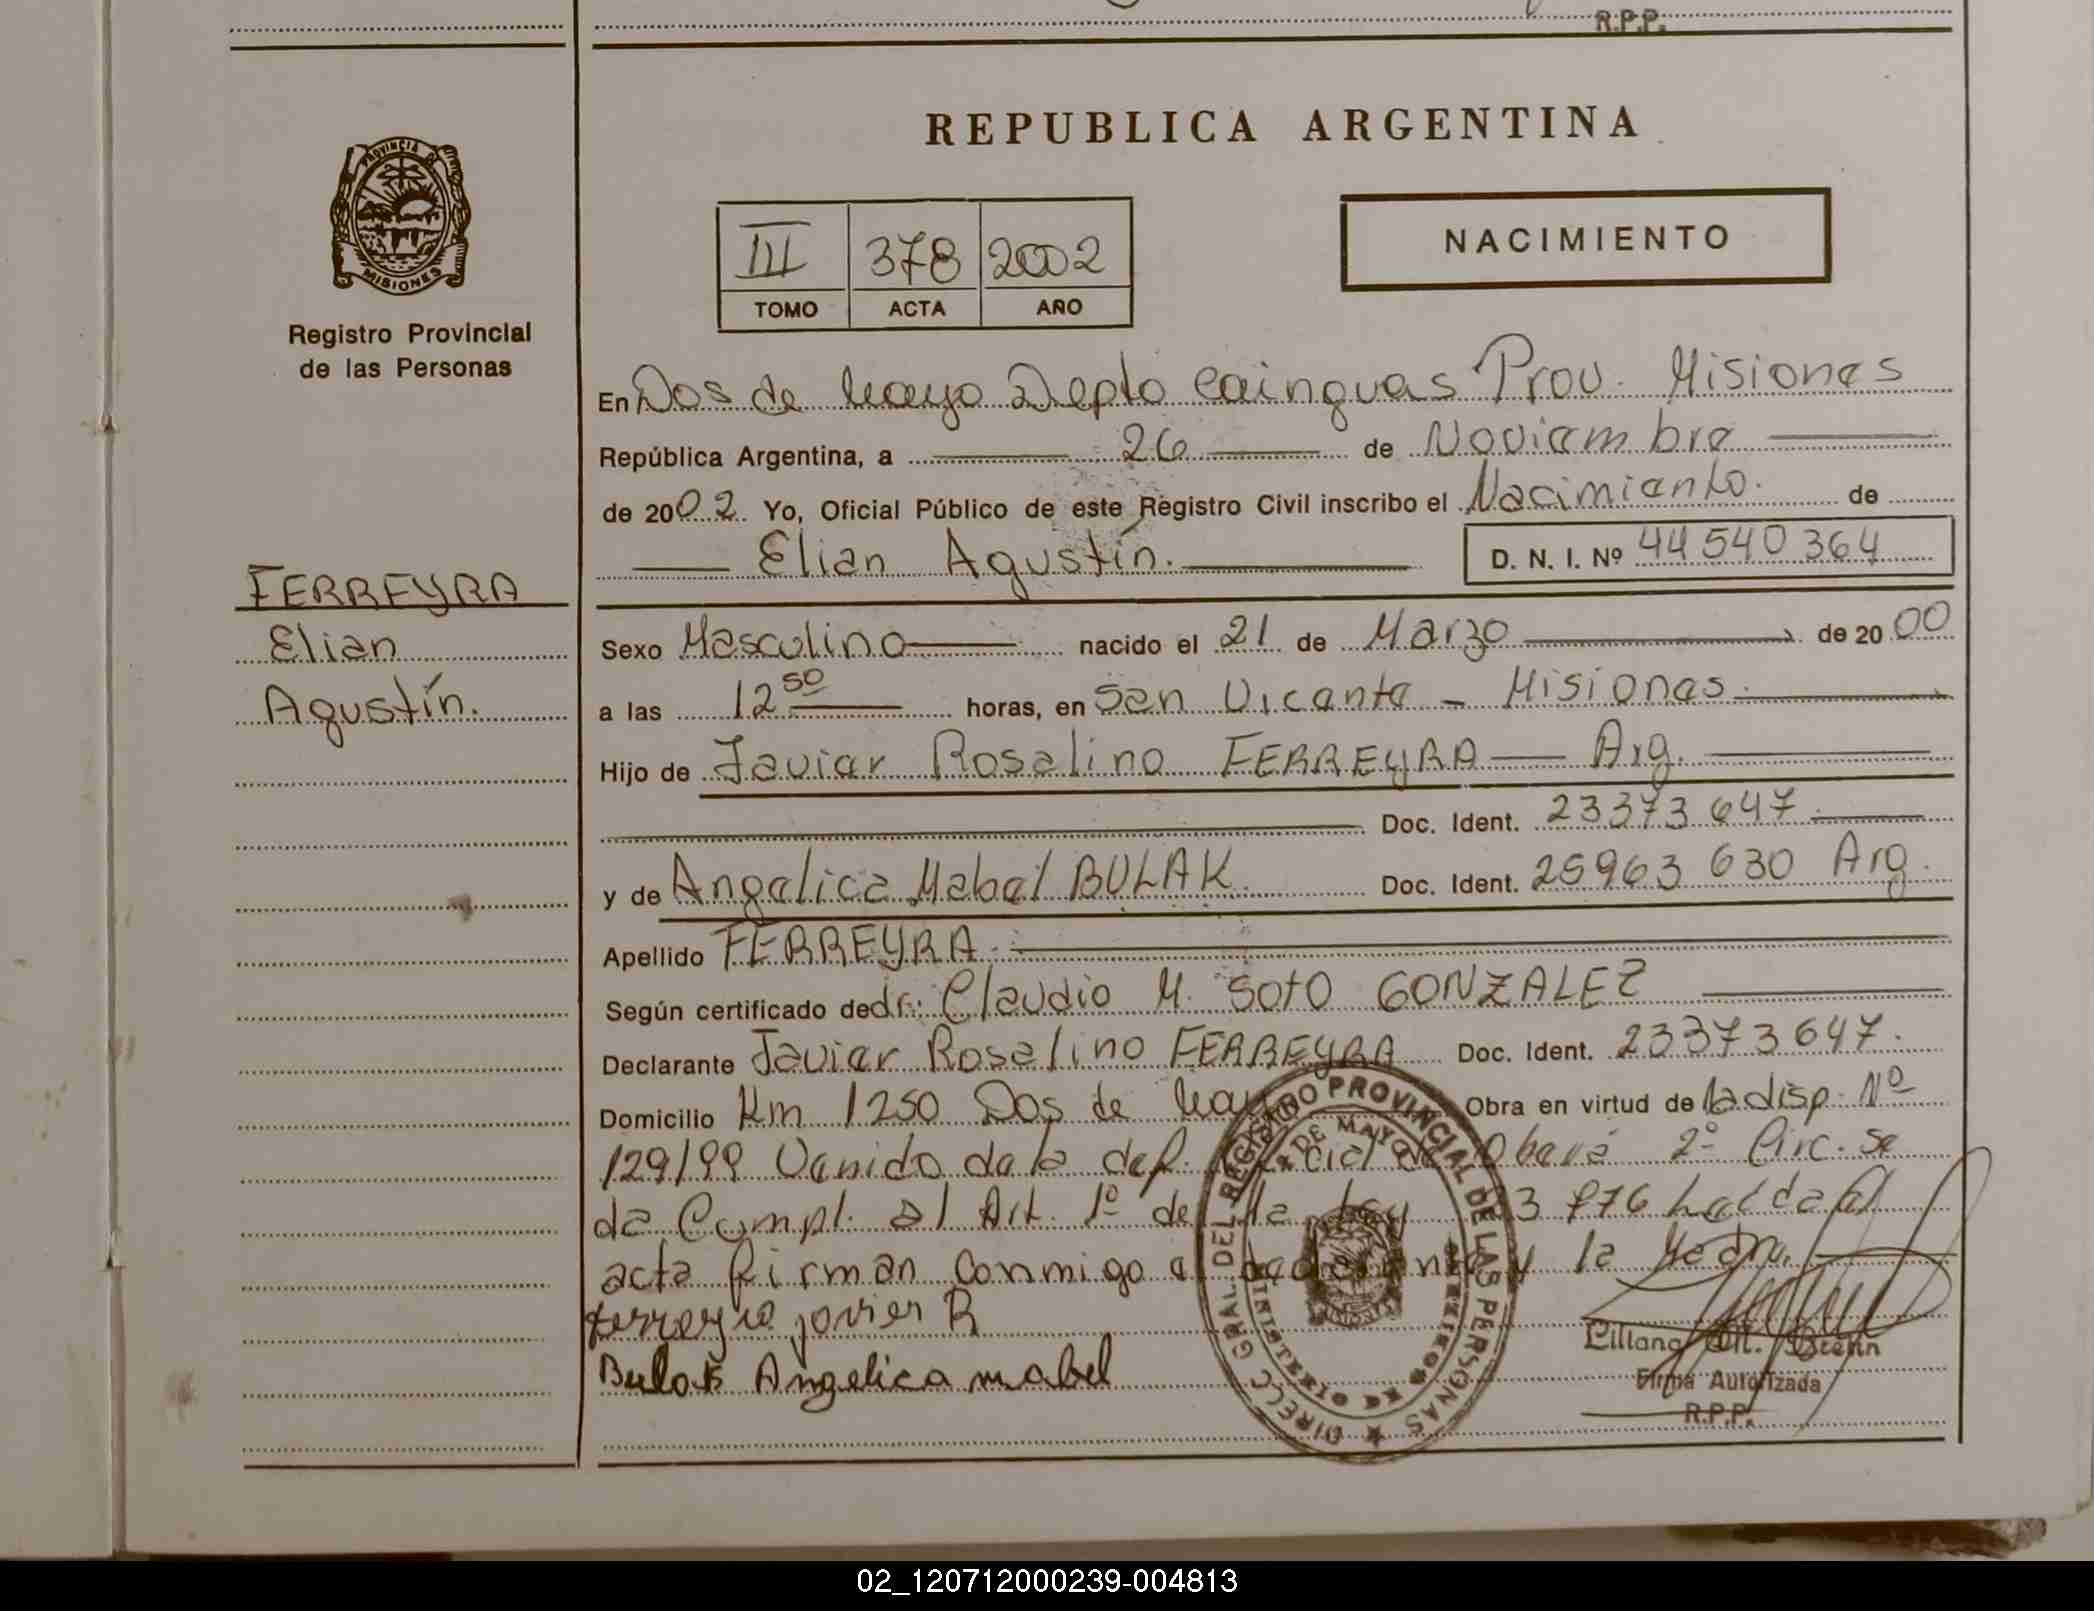 R.P.P.
REPUBLICA ARGENTINA
PROVINCIA DE
MISIONES
Registro Provincial
de las Personas
III 378 2002
TOMO ACTA AÑO
NACIMIENTO
En Dos de Mayo Depto Cainguas Prov. Misiones
República Argentina, a 26 de Noviembre
de 2002. Yo, Oficial Público de este Registro Civil inscribo el Nacimiento. de
Elian Agustín.
D. N. I. Nº 44 540 364
FERREYRA
Elian
Agustín.
Sexo Masculino nacido el 21 de Marzo de 2000
a las 12 50 horas, en San Vicente - Misiones.
Hijo de Javier Rosalino FERREYRA — Arg.
Doc. Ident. 23373 647
y de Angelica Mabel BULAK. Doc. Ident. 25963 630 Arg.
Apellido FERREYRA.
Según certificado de dr: Claudio M. Soto GONZALEZ
Declarante Javier Rosalino FERREYRA Doc. Ident. 23373647.
Domicilio Km 1250 Dos de Mayo Obra en virtud de la disp. Nº
129/99 Venido de la del. de Oberá 2º Circ. Se
da Compl. al Art. 1º de la Ley
acta firman conmigo el y la Madre.
Ferreyra javier R
Bulak Angelica mabel
DIRECC GRAL DEL REGISTRO PROVINCIAL DE LAS PERSONAS
DE MAYO
MINISTERIO DE GOBIERNO
Firma Autorizada
R.P.P.
02_120712000239-004813